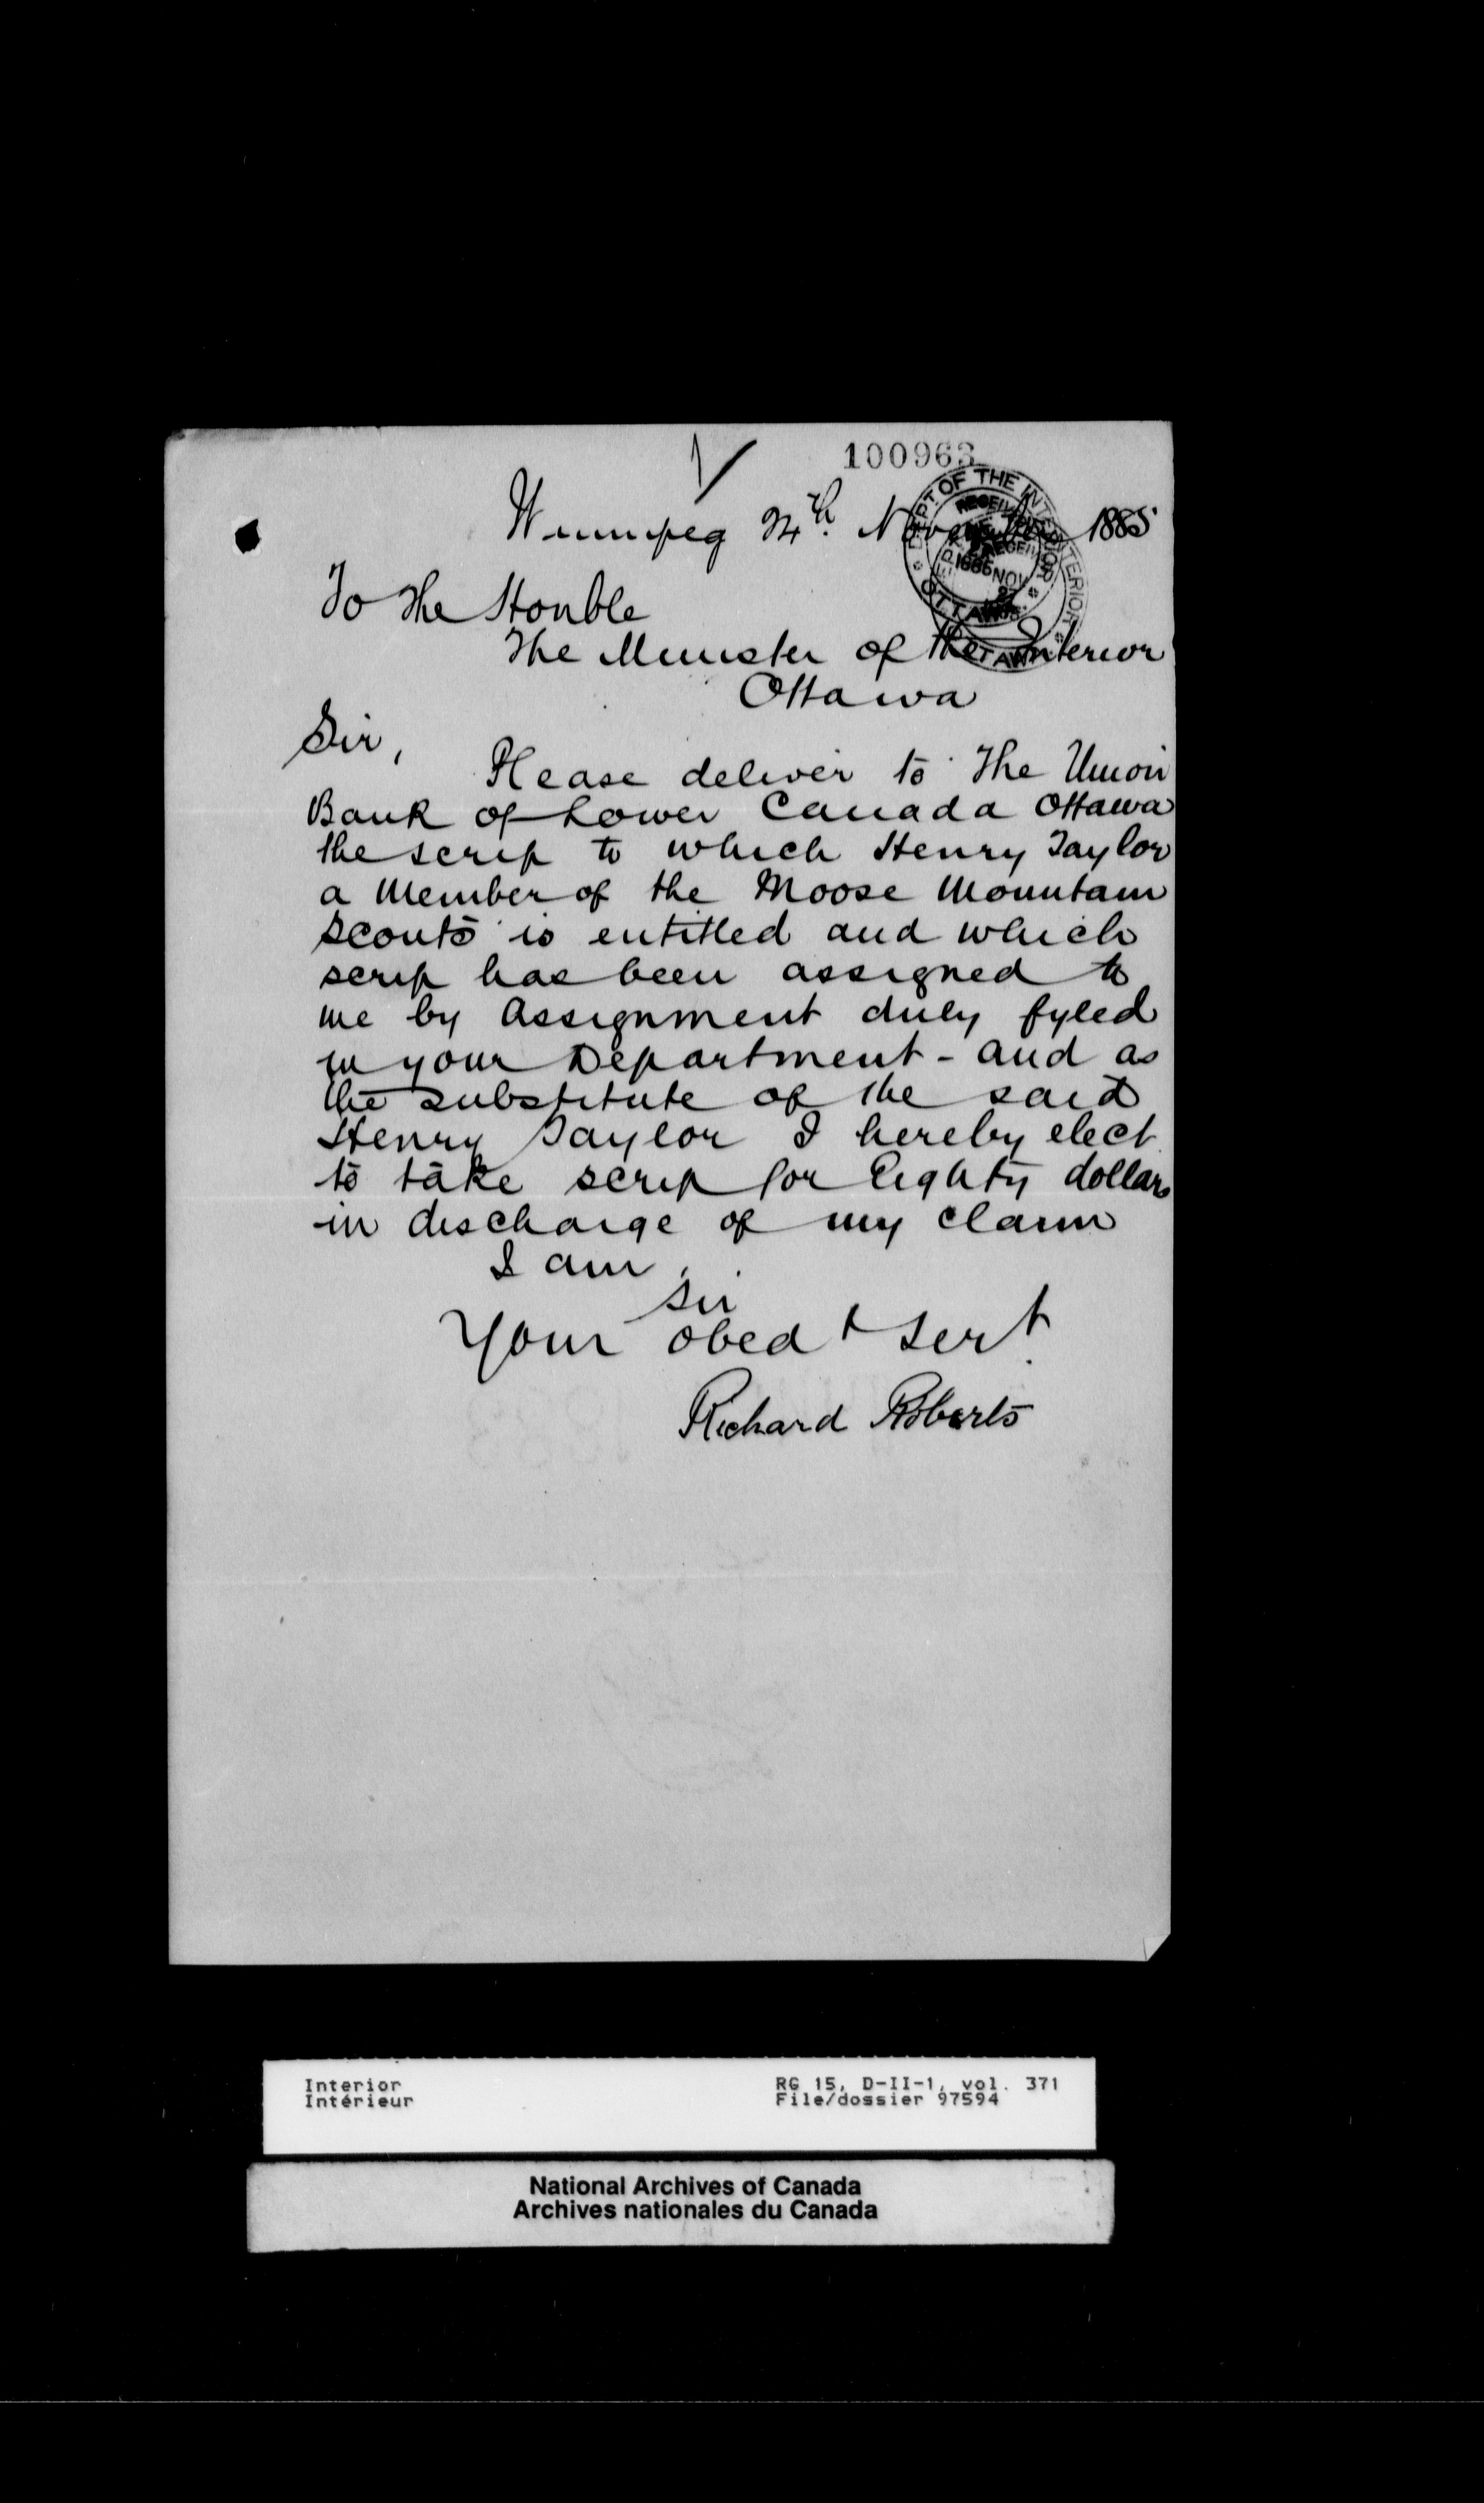 100963
Winnipeg 24th. November 1885
To The Honble
The Minister of the Interior
Ottawa
Sir,
Please deliver to The Union
Bank of Lower Canada Ottawa
the scrip to which Henry Taylor
a Member of the Moose Mountain
Scouts is entitled and which
scrip has been assigned to
me by Assignment duly fyled
in your Department - and as
the substitute of the said
Henry Taylor I hereby elect
to take scrip for Eighty dollars
in discharge of my claim
I am,
Sir
Your obedt Servt.
Richard Roberts
DEPT. OF THE INTERIOR
RECEIVED
OTTAWA
Interior
Intérieur
RG 15, D-II-1, vol. 371
File/dossier 97594
National Archives of Canada
Archives nationales du Canada